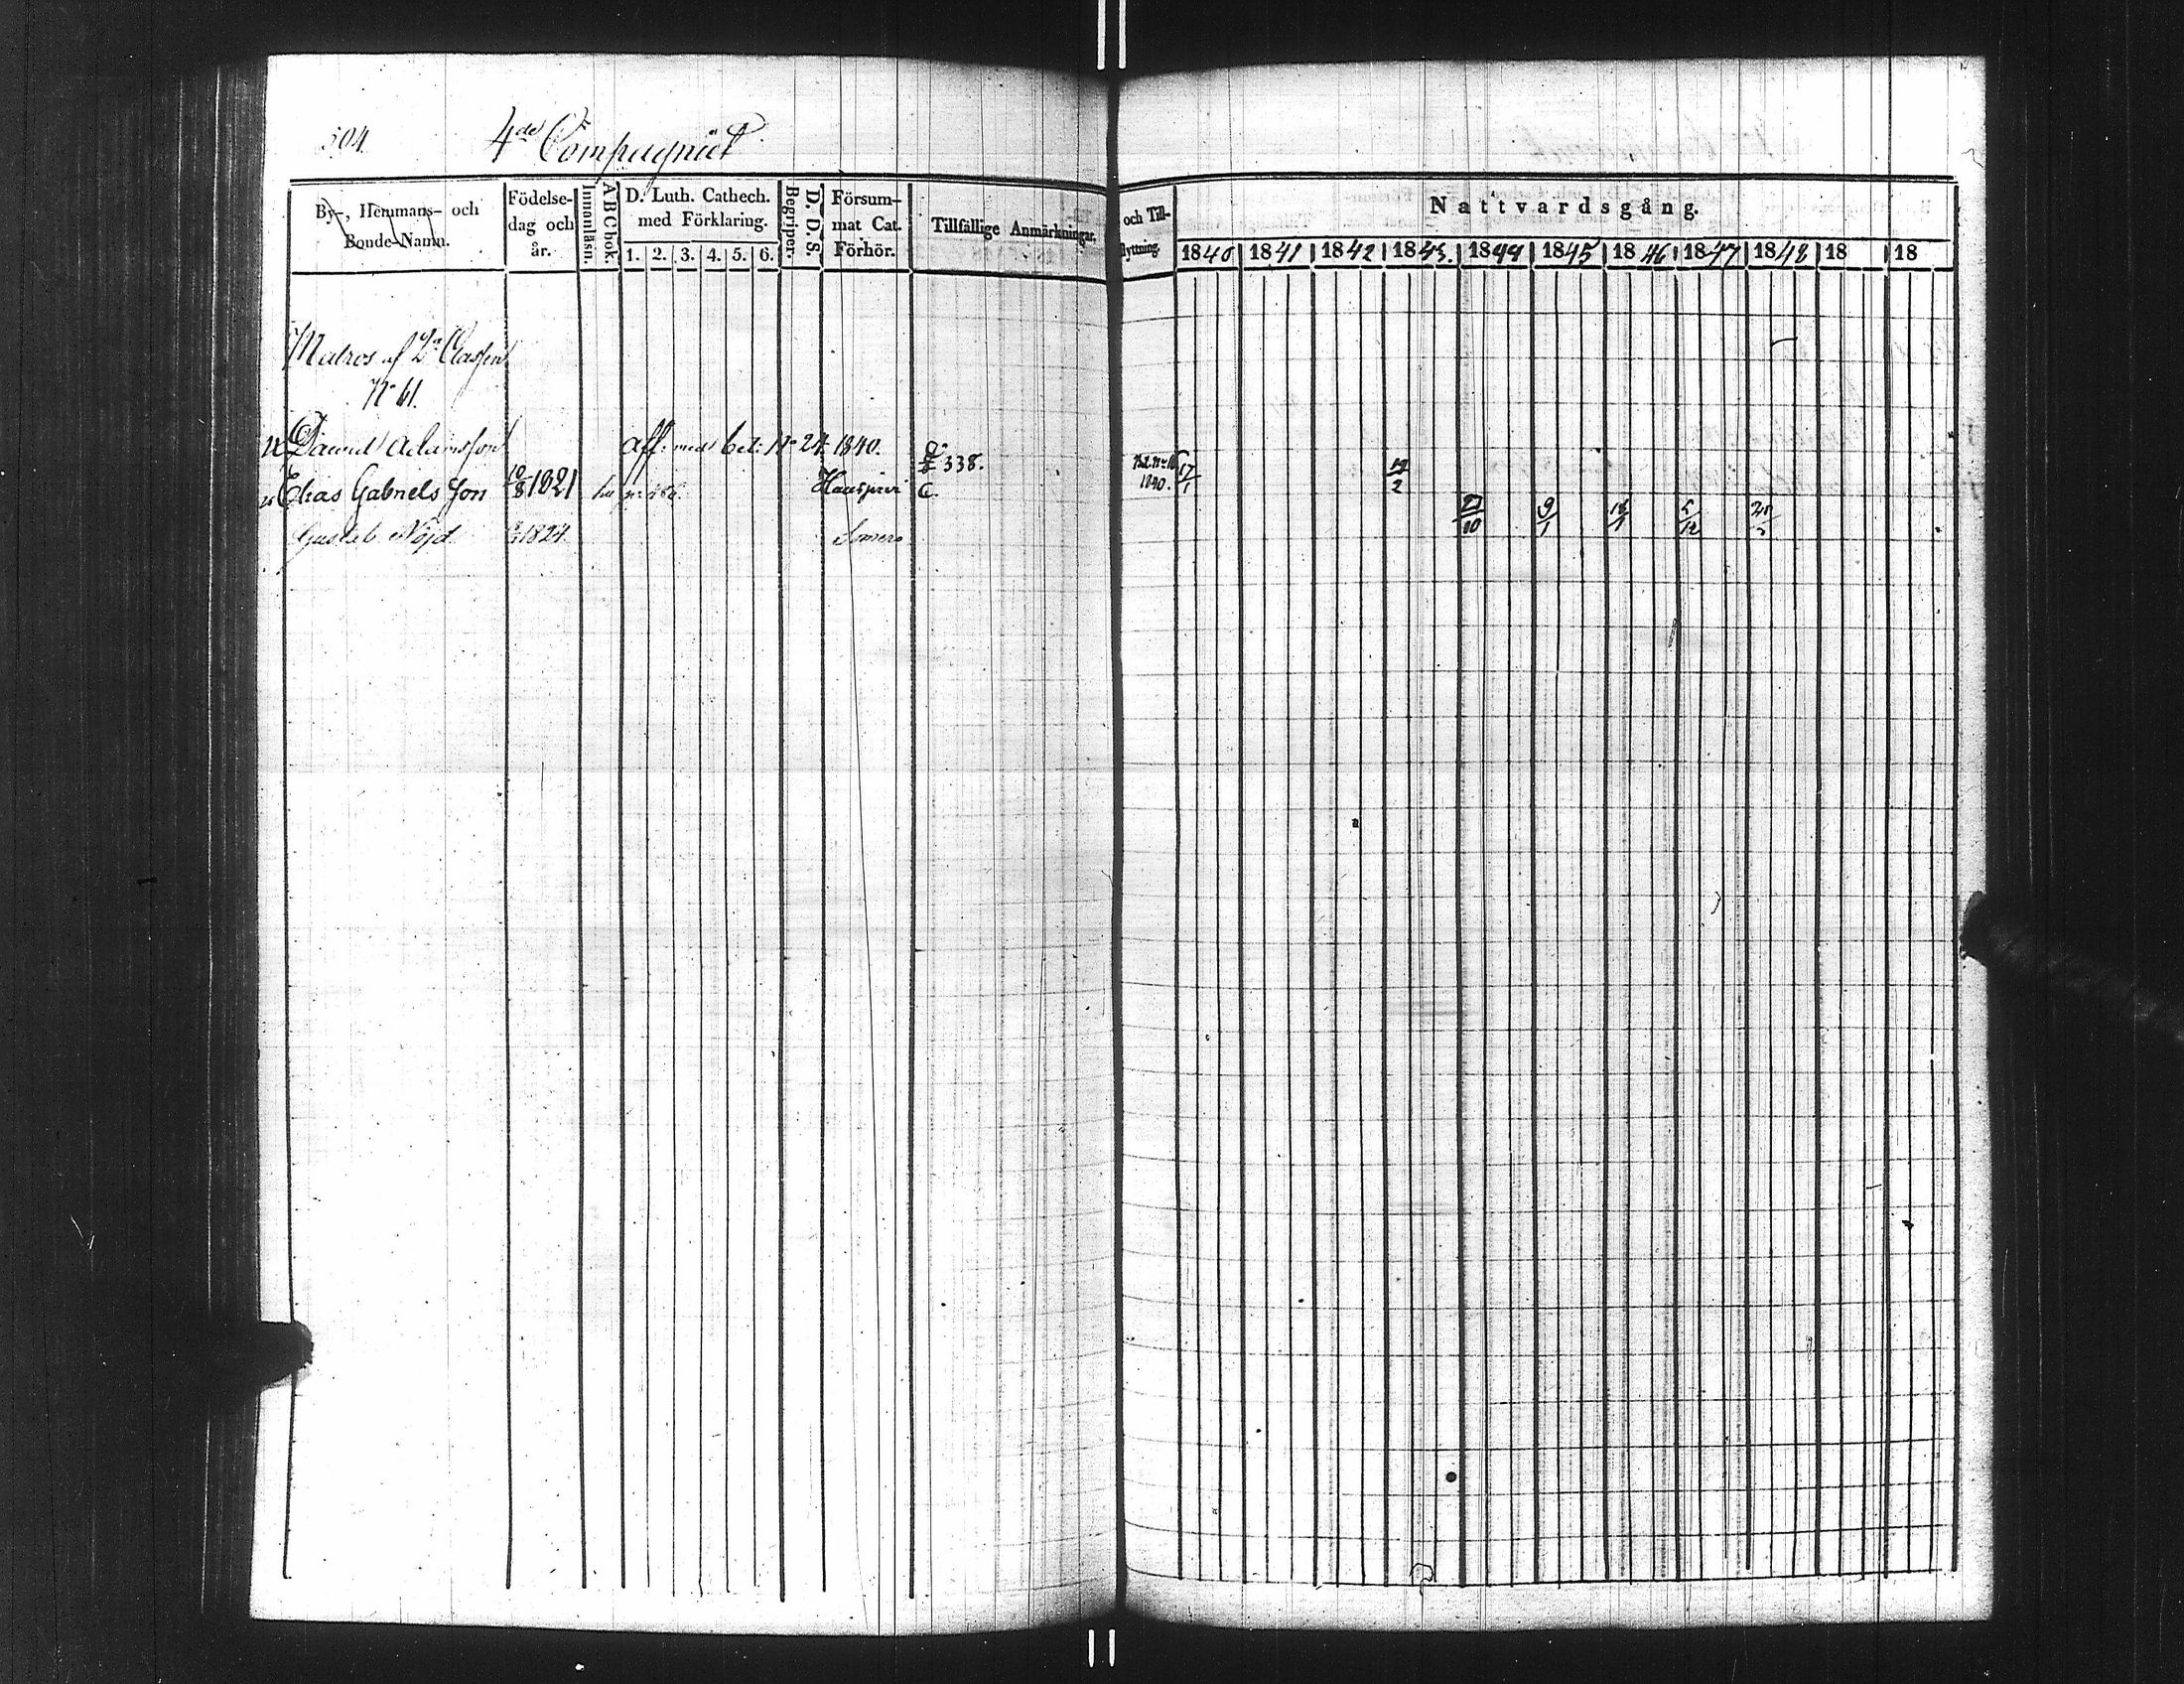 304.
4de Compagniet
By-, Hemmans- och Bonde-Namn.
Födelsedag och år.
Innanläsn.
ABCbok.
D. Luth. Cathech. med Förklaring.
1. 2. 3. 4. 5. 6.
Begriper.
D. D. S.
Försummat Cat. Förhör.
Tillfällige Anmärkningar,
och Till-
flyttning.
Nattvardsgång.
1840 1841 1842 1843. 1844 1845 1846 1847 1848 18 18
Matros af 2ra Classen
No 61.
David Adamsson Aff. med bet: No 24 1840.
338.
Elias Gabriels Son 10/8 1821 C. 1840. 17/1 12/2
Gustab Nöjd 1824 Somero 21/10 9/1 18/1 5/12